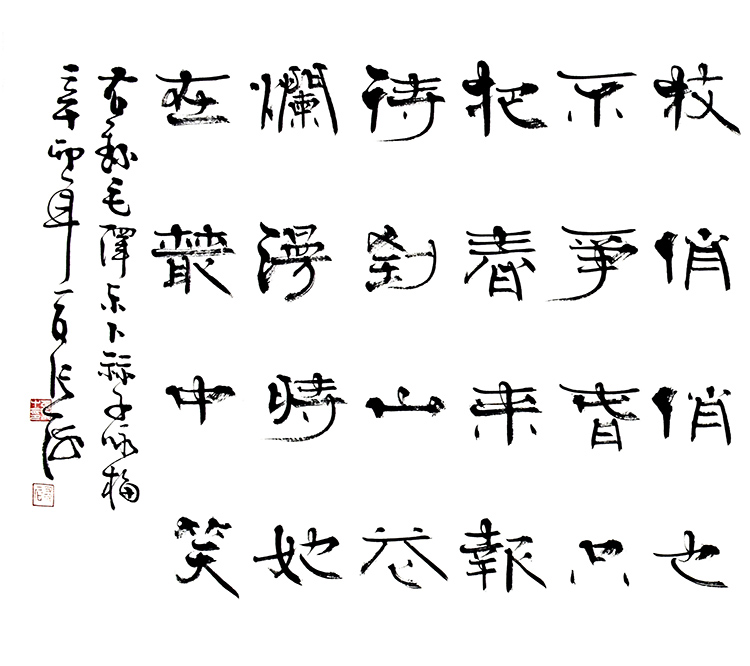 枝俏俏也
不爭春只
把春來報
待到山花
爛漫時她
在叢中笑
右録毛澤东卜祘子咏梅
辛卯年